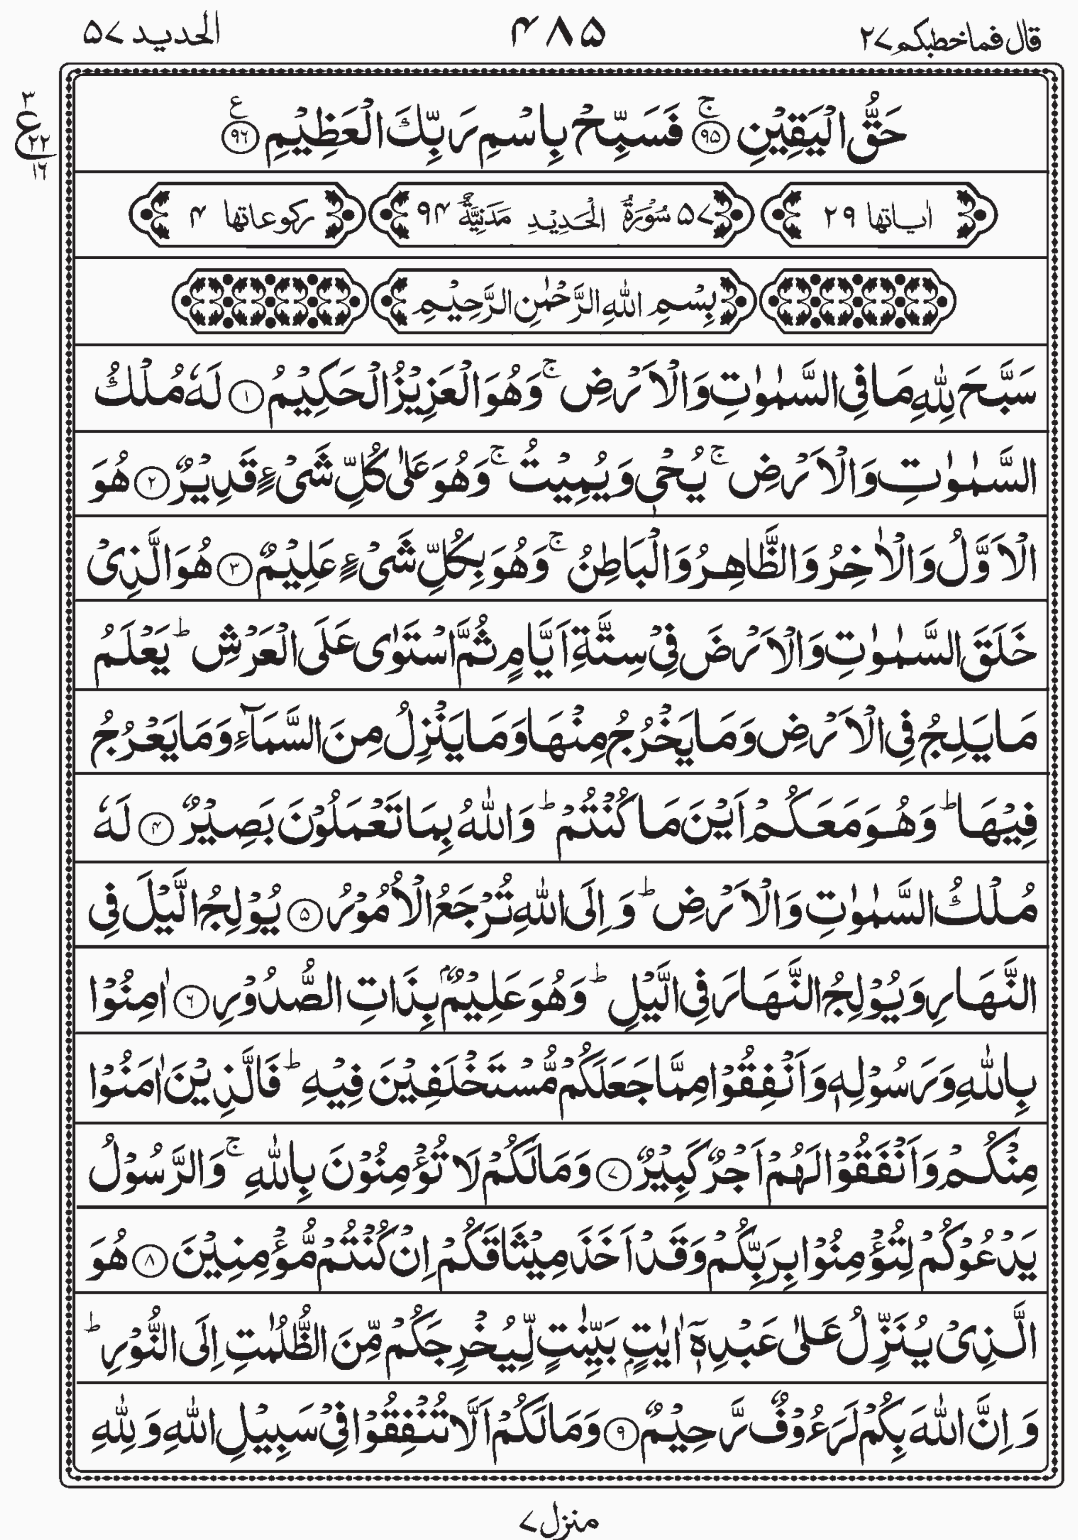 قال فماخطبكم ٢٧
۴۸۵
الحديد ۵۷
٣
ع
٢٢
١٦
حَقُّ الْيَقِيْنِ ﴿٩۵﴾ ۚ فَسَبِّحْ بِاسْمِ رَبِّكَ الْعَظِيْمِ ﴿٩٦﴾ ع
اٰياتها ٢٩
۵۷ سُوْرَةُ الْحَدِيْدِ مَدَنِيَّةٌ ٩۴
ركوعاتها ۴
بِسْمِ اللّٰهِ الرَّحْمٰنِ الرَّحِيْمِ
سَبَّحَ لِلّٰهِ مَا فِى السَّمٰوٰتِ وَالْاَرْضِ ۚ وَهُوَ الْعَزِيْزُ الْحَكِيْمُ ﴿١﴾ لَهٗ مُلْكُ
السَّمٰوٰتِ وَالْاَرْضِ ۚ يُحْىٖ وَيُمِيْتُ ۚ وَهُوَ عَلٰى كُلِّ شَىْءٍ قَدِيْرٌ ﴿٢﴾ هُوَ
الْاَوَّلُ وَالْاٰخِرُ وَالظَّاهِرُ وَالْبَاطِنُ ۚ وَهُوَ بِكُلِّ شَىْءٍ عَلِيْمٌ ﴿٣﴾ هُوَ الَّذِىْ
خَلَقَ السَّمٰوٰتِ وَالْاَرْضَ فِىْ سِتَّةِ اَيَّامٍ ثُمَّ اسْتَوٰى عَلَى الْعَرْشِ ؕ يَعْلَمُ
مَا يَلِجُ فِى الْاَرْضِ وَمَا يَخْرُجُ مِنْهَا وَمَا يَنْزِلُ مِنَ السَّمَآءِ وَمَا يَعْرُجُ
فِيْهَا ؕ وَهُوَ مَعَكُمْ اَيْنَ مَا كُنْتُمْ ؕ وَاللّٰهُ بِمَا تَعْمَلُوْنَ بَصِيْرٌ ﴿۴﴾ لَهٗ
مُلْكُ السَّمٰوٰتِ وَالْاَرْضِ ؕ وَاِلَى اللّٰهِ تُرْجَعُ الْاُمُوْرُ ﴿۵﴾ يُوْلِجُ الَّيْلَ فِى
النَّهَارِ وَيُوْلِجُ النَّهَارَ فِى الَّيْلِ ؕ وَهُوَ عَلِيْمٌۢ بِذَاتِ الصُّدُوْرِ ﴿٦﴾ اٰمِنُوْا
بِاللّٰهِ وَرَسُوْلِهٖ وَاَنْفِقُوْا مِمَّا جَعَلَكُمْ مُّسْتَخْلَفِيْنَ فِيْهِ ؕ فَالَّذِيْنَ اٰمَنُوْا
مِنْكُمْ وَاَنْفَقُوْا لَهُمْ اَجْرٌ كَبِيْرٌ ﴿۷﴾ وَمَا لَكُمْ لَا تُؤْمِنُوْنَ بِاللّٰهِ ۚ وَالرَّسُوْلُ
يَدْعُوْكُمْ لِتُؤْمِنُوْا بِرَبِّكُمْ وَقَدْ اَخَذَ مِيْثَاقَكُمْ اِنْ كُنْتُمْ مُّؤْمِنِيْنَ ﴿٨﴾ هُوَ
الَّذِىْ يُنَزِّلُ عَلٰى عَبْدِهٖۤ اٰيٰتٍۭ بَيِّنٰتٍ لِّيُخْرِجَكُمْ مِّنَ الظُّلُمٰتِ اِلَى النُّوْرِ ؕ
وَاِنَّ اللّٰهَ بِكُمْ لَرَءُوْفٌ رَّحِيْمٌ ﴿٩﴾ وَمَا لَكُمْ اَلَّا تُنْفِقُوْا فِىْ سَبِيْلِ اللّٰهِ وَلِلّٰهِ
منزل ۷